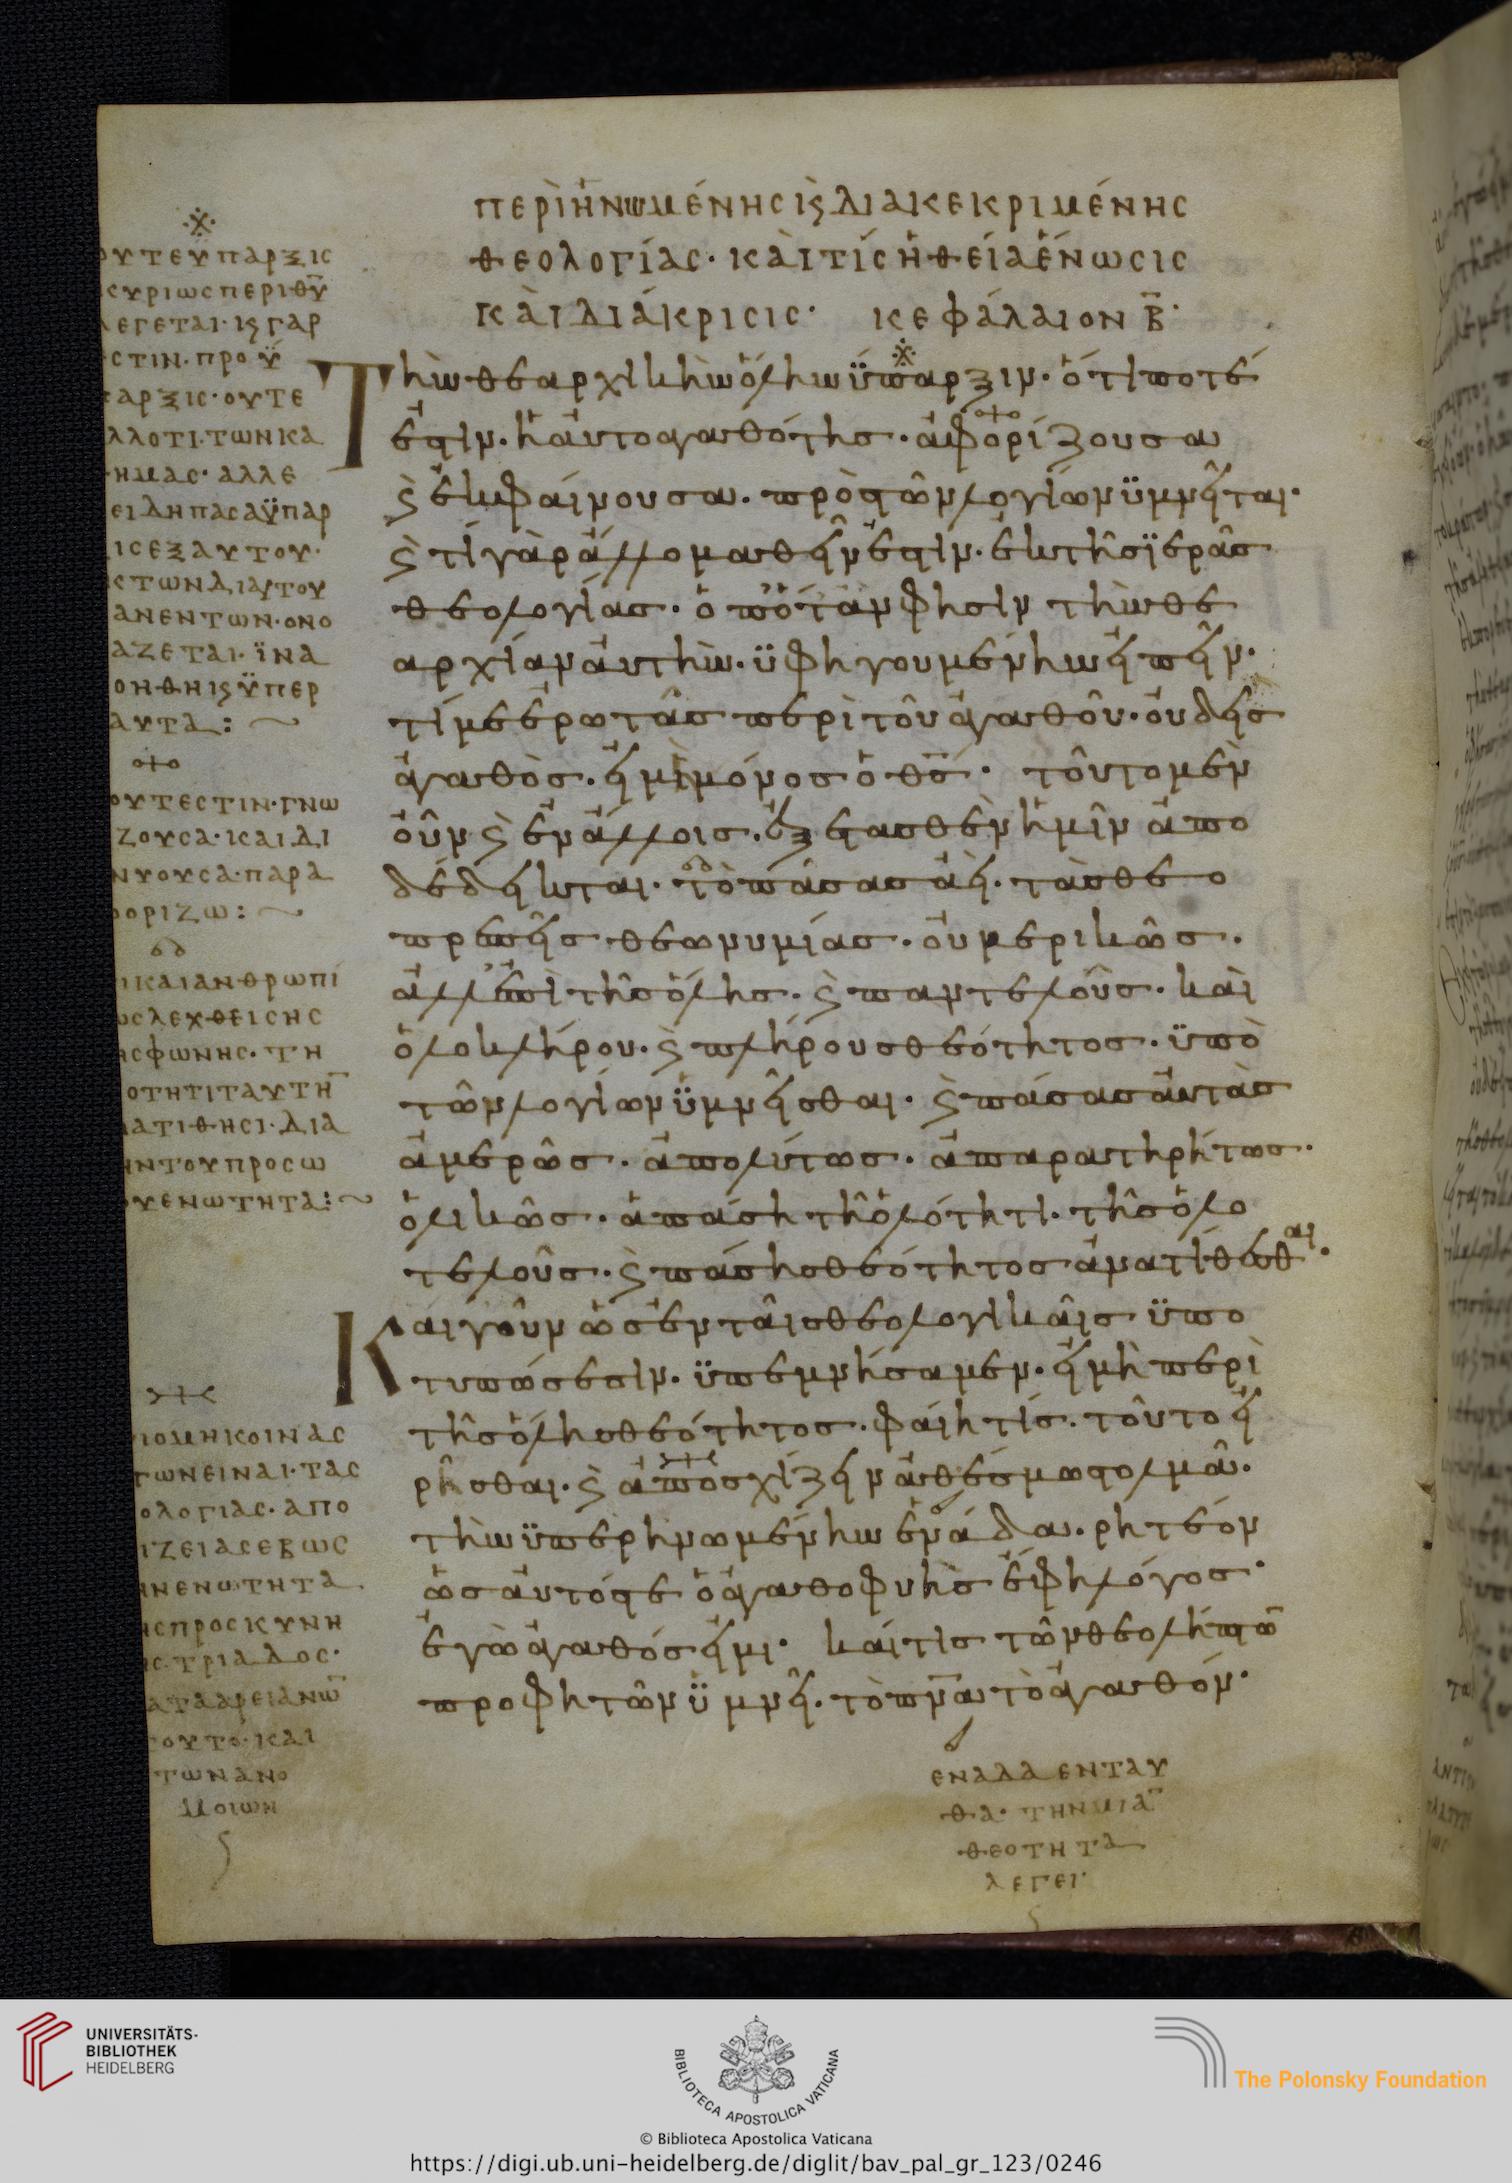 περὶ ἡνωμένης ϗ διακεκριμένης
θεολογίας· καὶ τίς ἡ θεία ἕνωσις
καὶ διάκρισις· κεφάλαιον β̅·
Τὴν θεαρχικὴν ὅλην ὕπαρξιν· ὅ τί ποτέ
ἐστιν· ἡ αὐτοαγαθότης· ἀφορίζουσα
ϗ ἐκφαίνουσα· πρὸς τῶν λογίων ὕμνηται·
ϗ τί γὰρ ἄλλο μαθεῖν ἔστιν· ἐκ τῆς ἱερᾶς
θεολογίας· ὁπόταν φησὶν τὴν θε
αρχίαν αὐτὴν· ὑφηγουμένην εἰπεῖν·
τί με ἐρωτᾶς περὶ τοῦ ἀγαθοῦ· οὐδεὶς
ἀγαθὸς· εἰ μὴ μόνος ὁ θς̅· τοῦτο μὲν
οὖν ϗ ἐν ἄλλοις· ἐξετασθὲν ἡμῖν ἀπο
δέδεικται· τὸ πάσας ἀεὶ· τὰς θεο
πρεπεῖς θεωνυμίας· οὐ μερικῶς·
ἀλλ' ἐπὶ τῆς ὅλης· ϗ παντελοῦς· καὶ
ὁλοκλήρου· ϗ πλήρους θεότητος· ὑπὸ
τῶν λογίων ὑμνεῖσθαι· ϗ πάσας αὐτὰς
ἀμερῶς· ἀπολύτως· ἀπαρατηρήτως·
ὁλικῶς· ἁπάσῃ τῇ ὁλότητι· τῆς ὁλο
τελοῦς· ϗ πάσης θεότητος ἀνατίθεσθαι·
Καὶ γοῦν ὡς ἐν ταῖς θεολογικαῖς ὑπο
τυπώσεσιν· ὑπεμνήσαμεν· εἰ μὴ περὶ
τῆς ὅλης θεότητος· φαίη τίς· τοῦτο εἰ
ρῆσθαι· ϗ ἀποσχίζειν ἀθέσμως τολμᾶ·
τὴν ὑπερηνωμένην ἑνάδα· ῥητέον
ὡς αὐτός τε ὁ ἀγαθοφυὴς ἔφη λόγος·
ἐγὼ ἀγαθός εἰμι· καί τις τῶν θεολήπτω̅
προφητῶν ὑμνεῖ· τὸ πνα̅ τὸ ἀγαθόν·
υτεϋπαρξις
υριωςπεριθυ̅
εγεται·ϗγαρ
στιν·προϋ
αρξις·ουτε
λλοτι·τωνκα
ημας·αλλε
ειδηπασαϋπαρ
ιςεξαυτου·
κτωνδιαυτου
ανεντων·ονο
αζεται·ϊνα
οηθηϗϋπερ
αυτα:
ουτεστιν·γνω
ζουσα·καιδι
νυουσα·παρα
οριζω:
ικαιανθρωπι
ωςλεχθεισης
ηςφωνης·τη
οτητιταυτη̅
ατιθησι·δια
ηντουπροσω
υενωτητα:
ιομηκοινας
τωνειναι·τας
ολογιας·απο
ιζειασεβως
ηνενωτητα
ηςπροσκυνη
ης·τριαδος·
αταρειανω̅
τουτο·και
τωνανο
μοιων
εναδαενταυ
θα·τηνμια̅
θεοτητα
λεγει·
UNIVERSITÄTS-
BIBLIOTHEK
HEIDELBERG
BIBLIOTECA APOSTOLICA VATICANA
The Polonsky Foundation
© Biblioteca Apostolica Vaticana
https://digi.ub.uni-heidelberg.de/diglit/bav_pal_gr_123/0246